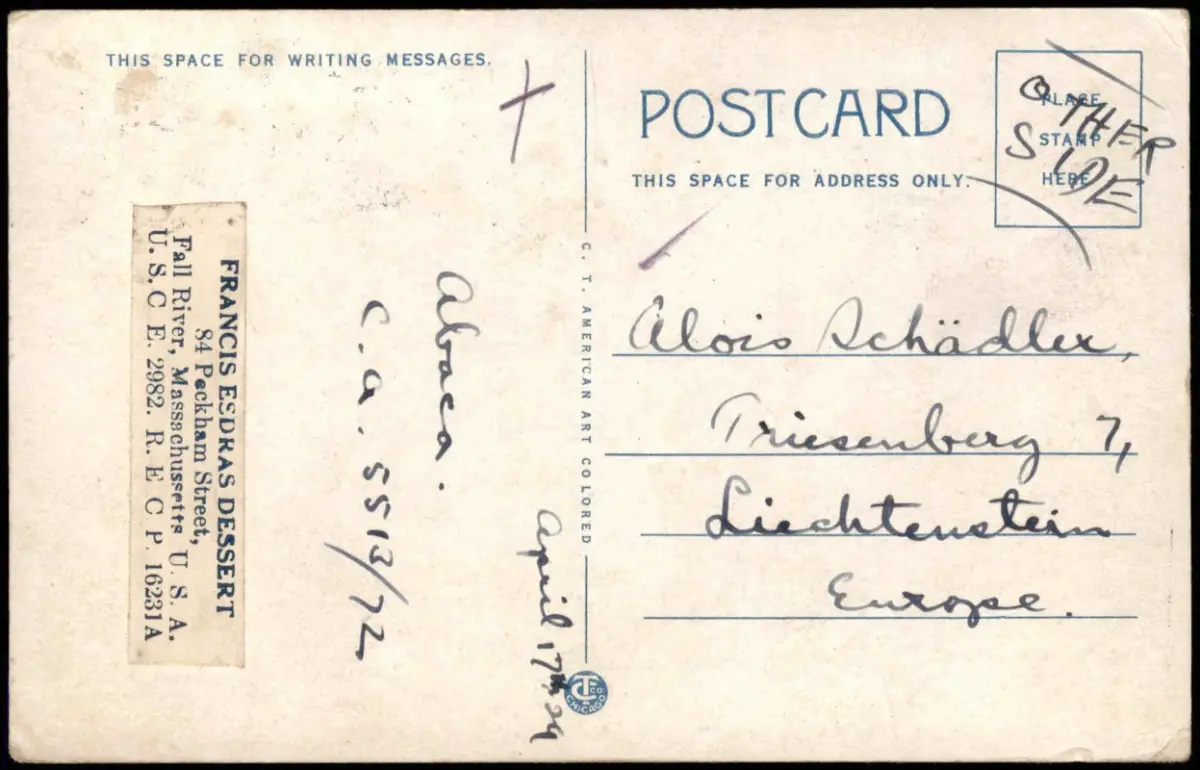 THIS SPACE FOR WRITING MESSAGES.
FRANCIS ESDRAS DESSERT
84 Peckham Street,
Fall River, Massachusetts U. S. A.
U. S. C E. 2982. R. E C P. 16231A
Abaca.
C. A. 5513/72
April 17th 29
C. T. AMERICAN ART COLORED
CTCO
CHICAGO
POST CARD
THIS SPACE FOR ADDRESS ONLY.
PLACE
STAMP
HERE
OTHER
SIDE
Alois Schädler,
Triesenberg 7,
Liechtenstein
Europe.